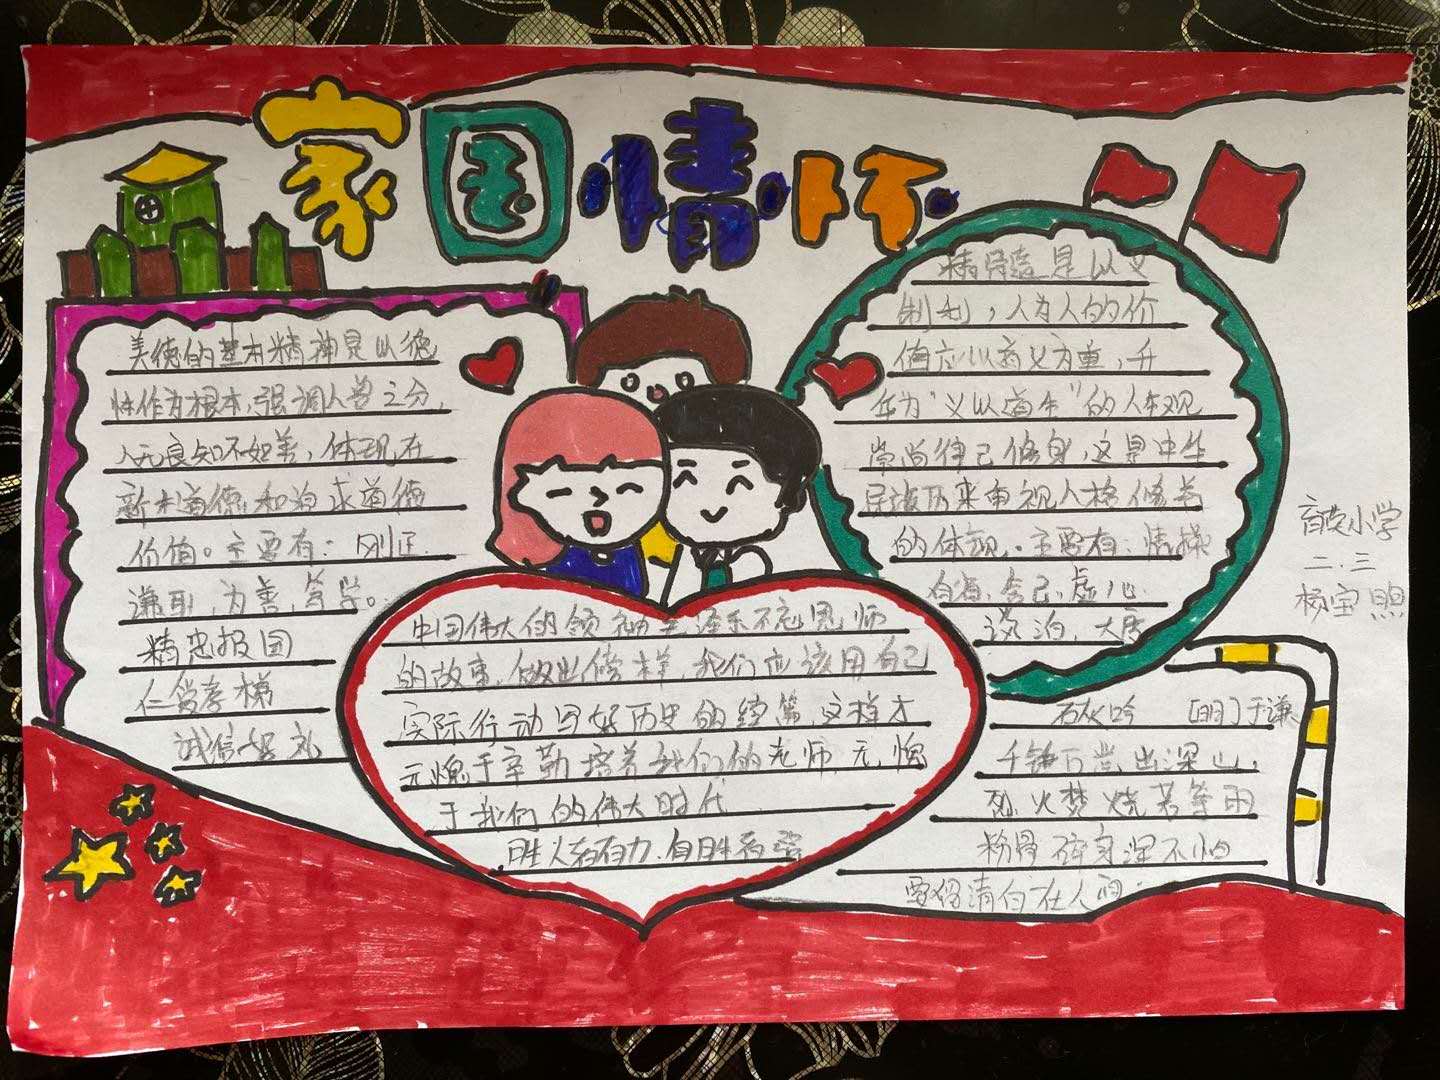 家国情怀
美德的基本精神是以德
性作为根本,强调人兽之分,
人无良知不如兽,体现在
新木道德和追求道德
价值。主要有:刚正
谦耻,为善,笃学。
精忠报国
仁爱孝悌
诚信知礼
中国伟大的领袖毛泽东不忘恩师
的故事,做出榜样,我们应该用自己
实际行动写好历史的续篇,这样才
无愧于辛勤培养我们的老师,无愧
于我们的伟大时代
胜人者有力,自胜者强
是以义
制利,人为人的价
值应以义为重,升
华为“义以道生”的人生观
崇尚律己修身,这是中华
民族历来重视人格修养
的体现。主要有:情操
自,舍己,虚心
淡泊,大度
石灰吟 [明]于谦
千锤万凿出深山,
烈火焚烧若等闲
粉骨碎身浑不怕
要留清白在人间
小学
二.三
杨宝